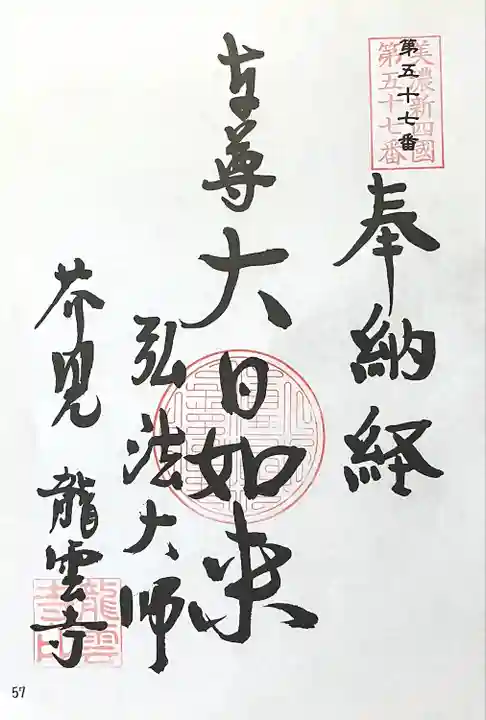 美濃新四國
第五十七番
第五十七番
奉納経
本尊 大日如来
弘法大師
芥見 龍雲寺
龍雲
寺印
57